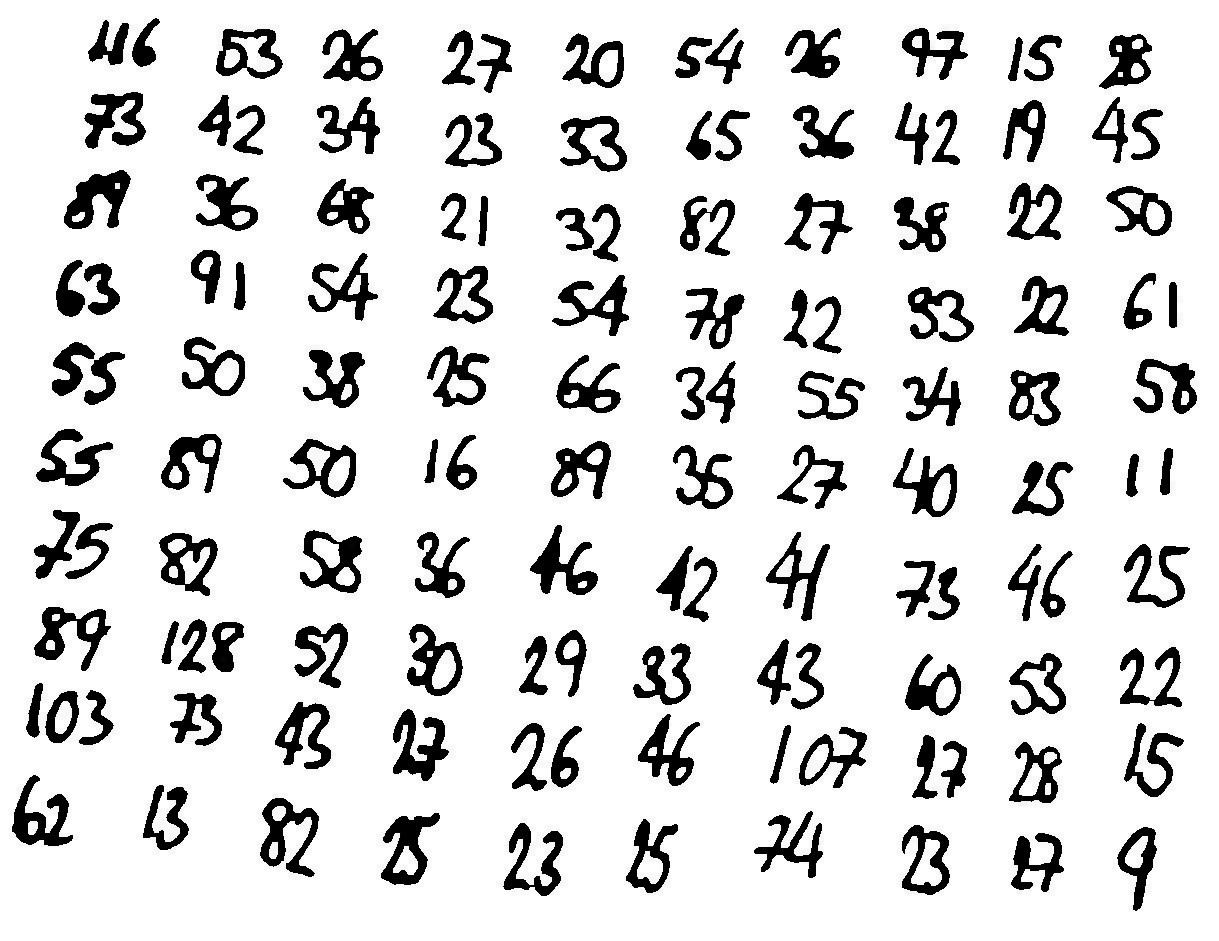 46 53 26 27 20 54 26 97 15 28
73 42 34 23 33 65 36 42 19 45
89 36 68 21 32 82 27 38 22 50
63 91 54 23 54 78 22 33 22 61
55 50 38 25 66 34 55 34 83 58
55 89 50 16 89 35 27 40 25 11
75 82 58 36 46 42 41 73 46 25
89 128 52 30 29 33 43 60 53 22
103 73 43 27 26 46 107 27 28 15
62 13 82 25 23 25 74 23 27 9